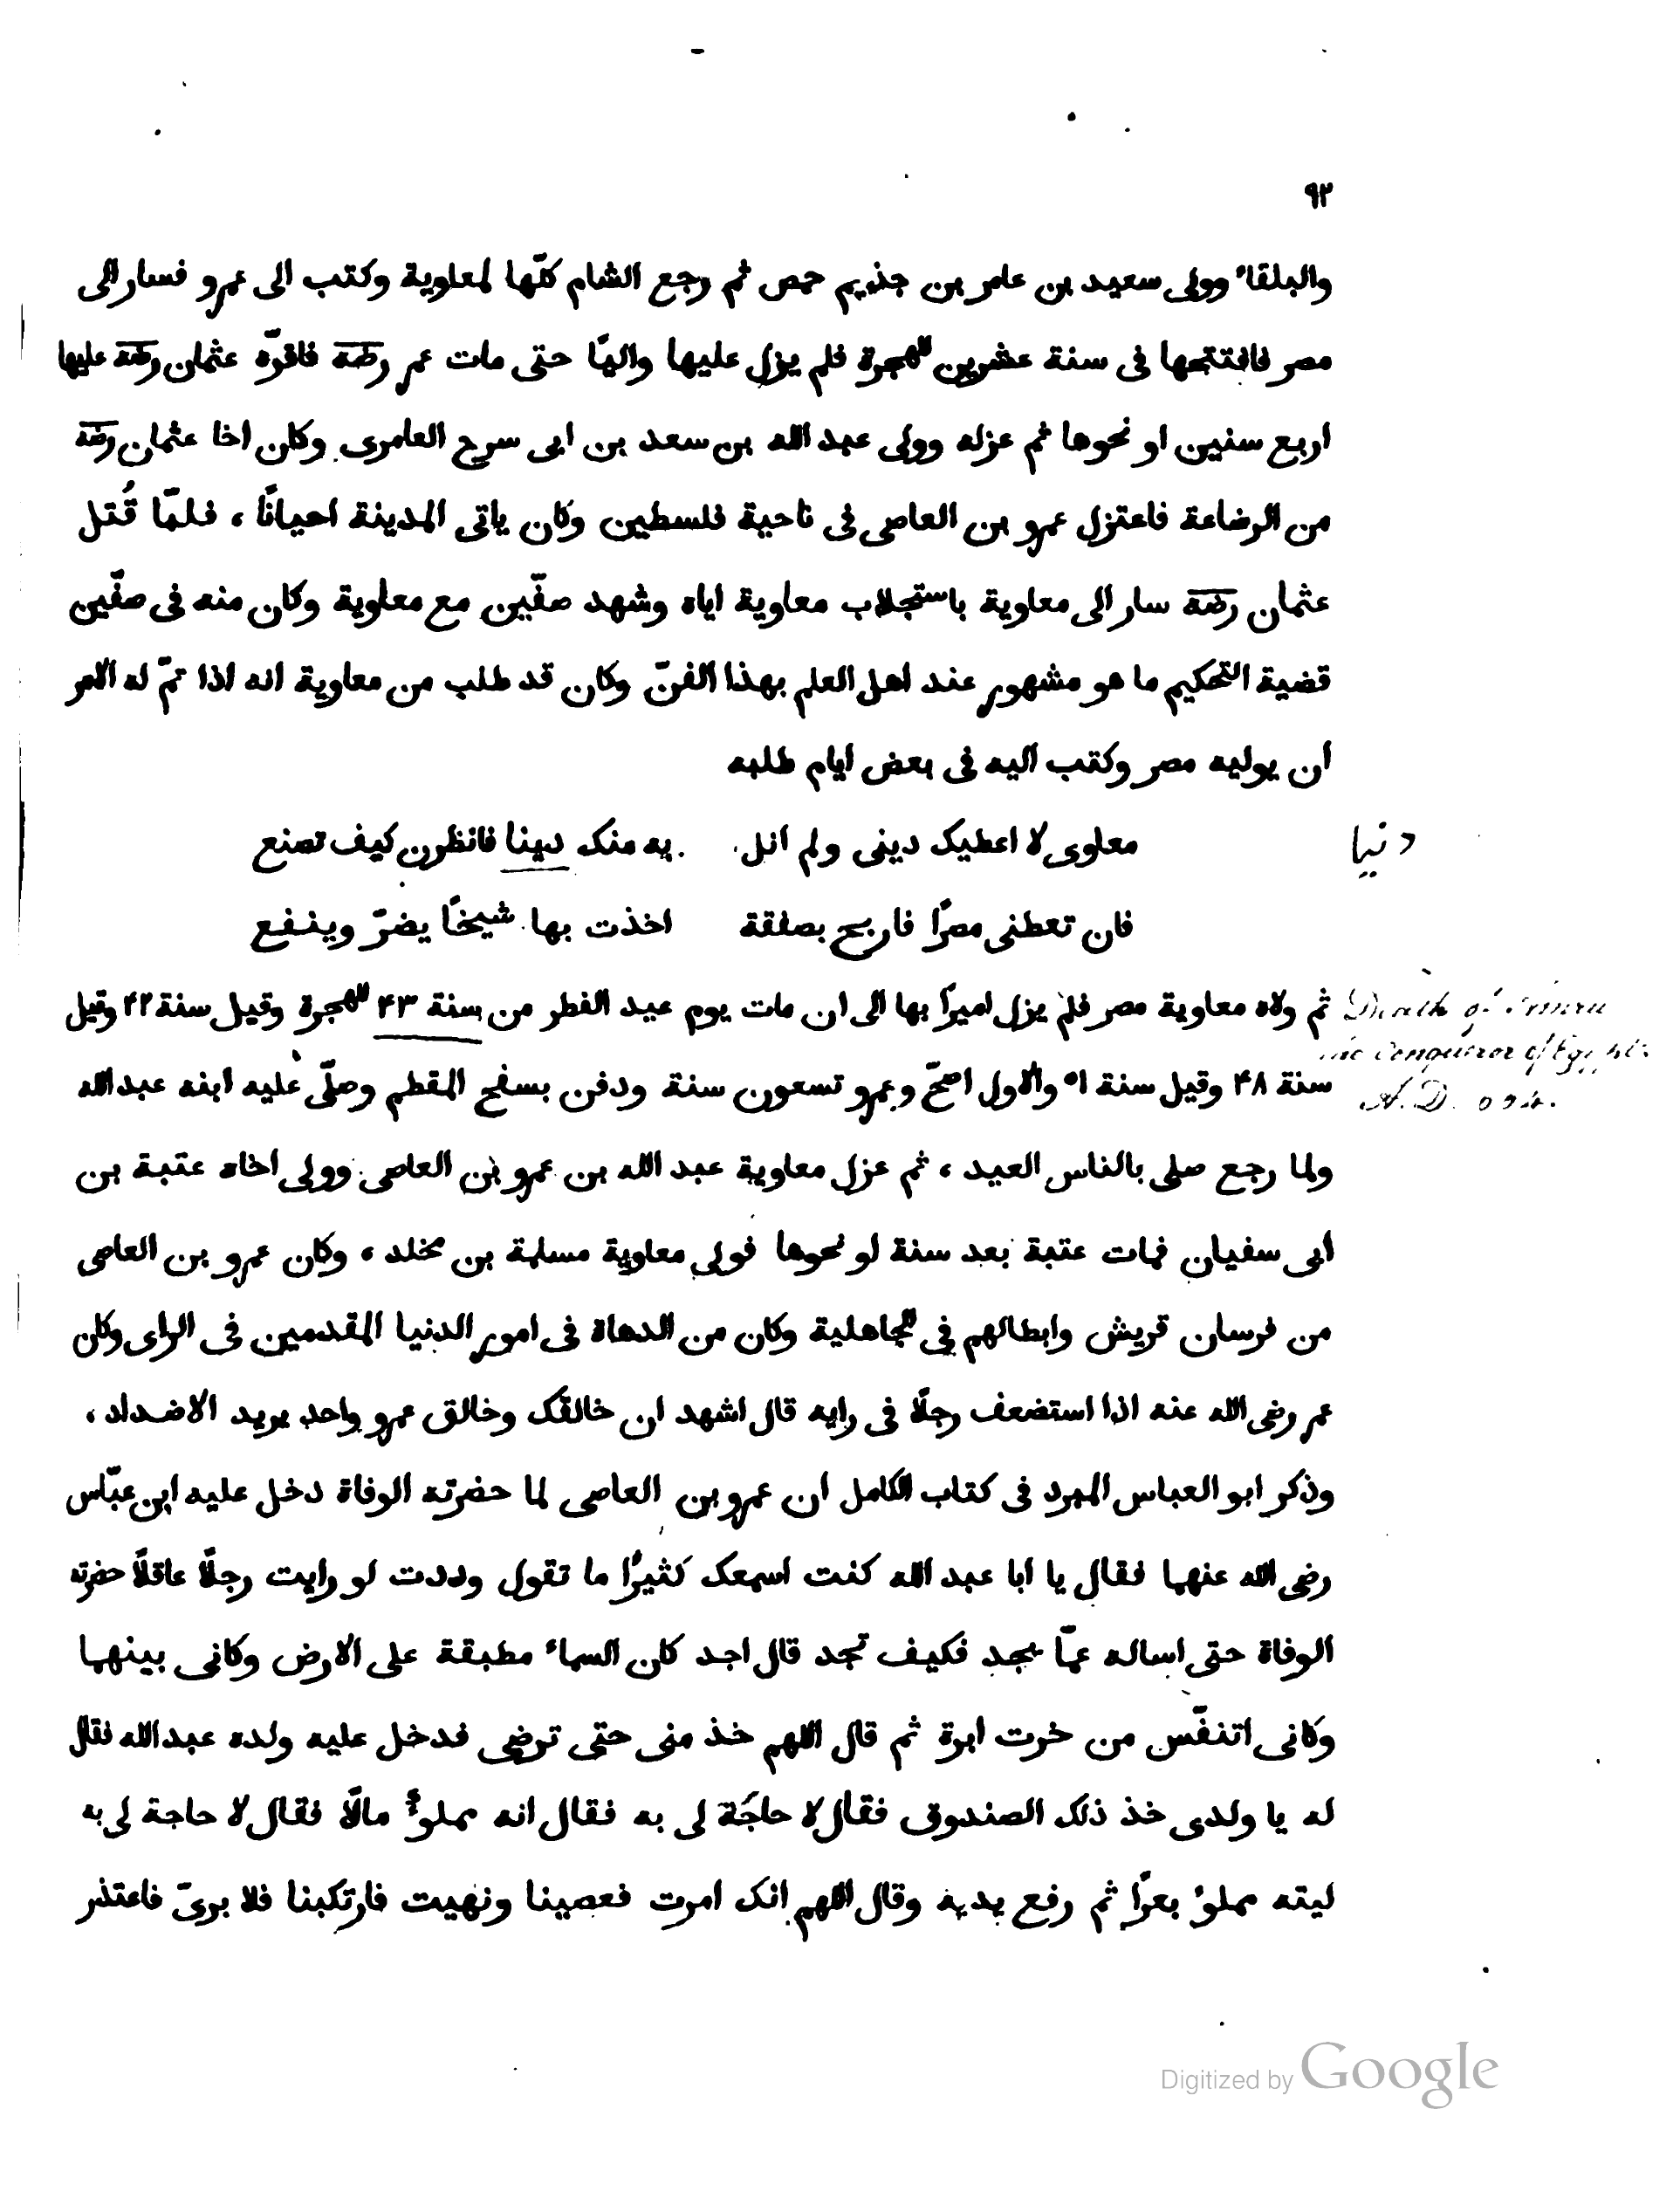 ٩٢
والبلقاء وولى سعيد بن عامر بن جذيم حمص ثم رجع الشام كلّها لمعاوية وكتب الى عمرو فسار الى
مصر فافتتحها فى سنة عشرين للهجرة فلم يزل عليها واليًا حتى مات عمر رضه فاقرّه عثمان رضه عليها
اربع سنين او نحوها ثم عزله وولى عبد الله بن سعد بن ابى سرح العامرى وكان اخا عثمان رضه
من الرضاعة فاعتزل عمرو بن العاصى فى ناحية فلسطين وكان ياتى المدينة احيانًا، فلمّا قُتل
عثمان رضه سار الى معاوية باستجلاب معاوية اياه وشهد صفّين مع معاوية وكان منه فى صفّين
قضية التحكيم ما هو مشهور عند اهل العلم بهذا الفنّ وكان قد طلب من معاوية انه اذا تمّ له الامر
ان يوليه مصر وكتب اليه فى بعض ايام طلبه
معاوى لا اعطيك دينى ولم انل به منك دينا فانظرن كيف تصنع
دنيا
فان تعطنى مصرًا فاربح بصفقة اخذت بها شيخًا يضرّ وينفع
ثم ولاه معاوية مصر فلم يزل اميرًا بها الى ان مات يوم عيد الفطر من سنة ۴۳ للهجرة وقيل سنة ۴۲ وقيل
Death of Amru
the Conqueror of Egypt.
A.D.
سنة ۴۸ وقيل سنة ٥١ والاول اصحّ وعمرو تسعون سنة ودفن بسفح المقطم وصلّى عليه ابنه عبد الله
ولما رجع صلى بالناس العيد، ثم عزل معاوية عبد الله بن عمرو بن العاصى وولى اخاه عتبة بن
ابى سفيان فمات عتبة بعد سنة او نحوها فولى معاوية مسلمة بن مخلد، وكان عمرو بن العاصى
من فرسان قريش وابطالهم فى الجاهلية وكان من الدهاة فى امور الدنيا المقدمين فى الراى وكان
عمر رضى الله عنه اذا استضعف رجلًا فى رايه قال اشهد ان خالقك وخالق عمرو واحد يريد الاضداد،
وذكر ابو العباس المبرد فى كتاب الكامل ان عمرو بن العاصى لما حضرته الوفاة دخل عليه ابن عبّاس
رضى الله عنهما فقال يا ابا عبد الله كنت اسمعك كثيرًا ما تقول وددت لو رايت رجلًا عاقلًا حضرته
الوفاة حتى اساله عمّا يجد فكيف تجد قال اجد كان السماء مطبقة على الارض وكانى بينهما
وكانى اتنفّس من خرت ابرة ثم قال اللهم خذ منى حتى ترضى فدخل عليه ولده عبد الله فقال
له يا ولدى خذ ذلك الصندوق فقال لا حاجَة لى به فقال انه مملوءٌ مالًا فقال لا حاجة لى به
ليته مملوء بعرًا ثم رفع يديه وقال اللهم انك امرت فعصينا ونهيت فارتكبنا فلا برىّ فاعتذر
Digitized by Google